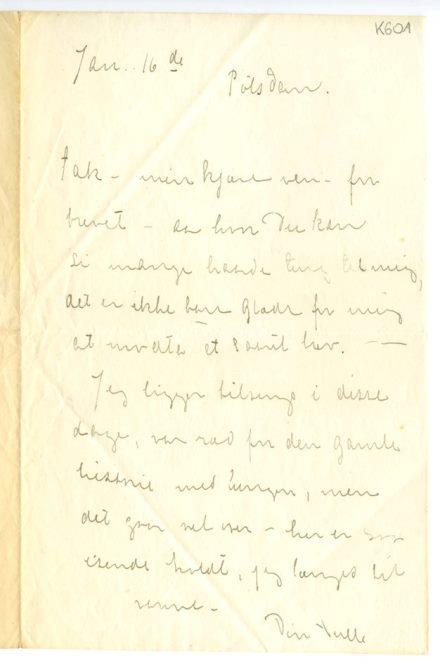 K601
Jan. 16 de
Potsdam.
Tak - min kjære ven - for
brevet - aa hvor Du kan
si mange haarde ting til mig,
det er ikke bare glade for mig
at motta et saant brev. -
Jeg ligger tilsengs i disse
dage, var ræd for den gamle
historie med lungen, men
det gaar vel over - her er saa
isende koldt, jeg længes til
varme -
Din Tulla